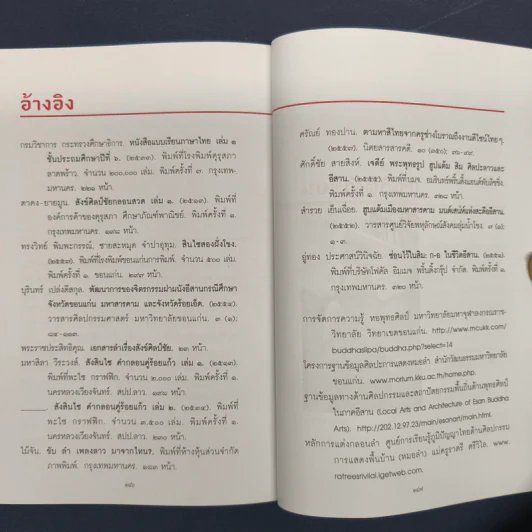 อ้างอิง
กรมวิชาการ กระทรวงศึกษาธิการ. หนังสือแบบเรียนภาษาไทย เล่ม ๑
ชั้นประถมศึกษาปีที่ ๖. พิมพ์ที่โรงพิมพ์คุรุสภา
ลาดพร้าว. จำนวน ๒๐๐,๐๐๐ เล่ม. พิมพ์ครั้งที่ ๓. กรุงเทพ-
มหานคร. ๒๒๑ หน้า.
ดาคง-ยายมูน. สังข์ศิลป์ชัยกลอนสวด เล่ม ๑. พิมพ์ที่
องค์การค้าของคุรุสภา ศึกษาภัณฑ์พาณิชย์. พิมพ์ครั้งที่ ๑.
กรุงเทพมหานคร. หน้า.
ทรงวิทย์ พิมพะกรรณ์. ชายสะหมุด จำปาอุทุม. สินไซสองฝั่งโขง.
พิมพ์ที่โรงพิมพ์ขอนแก่นการพิมพ์. จำนวน ๕๐๐ เล่ม.
พิมพ์ครั้งที่ ๑. ขอนแก่น. หน้า.
บุรินทร์ เปล่งดีสกุล. พัฒนาการของจิตรกรรมฝาผนังอีสานกรณีศึกษา
จังหวัดขอนแก่น มหาสารคาม และจังหวัดร้อยเอ็ด.
วารสารศิลปกรรมศาสตร์ มหาวิทยาลัยขอนแก่น. ๓ (๑):
พระราชประสิทธิคุณ. เอกสารลำเรื่องสังข์ศิลป์ชัย. ๒๓ หน้า.
มหาสิลา วีระวงส์. สังสินไช คำกลอนคู่ร้อยแก้ว เล่ม ๑.
พิมพ์ที่พะไช กราฟฟิก. จำนวน ๒,๐๐๐ เล่ม. พิมพ์ครั้งที่ ๑.
นครหลวงเวียงจันทร์. สปป.ลาว. หน้า.
______. สังสินไช คำกลอนคู่ร้อยแก้ว เล่ม ๒. พิมพ์ที่
พะไช กราฟฟิก. จำนวน ๑,๕๐๐ เล่ม. พิมพ์ครั้งที่ ๑.
นครหลวงเวียงจันทร์. สปป.ลาว. ๒๓๐ หน้า.
ไม้จัน. ขับ ลำ เพลงลาว มาจากไหน?. พิมพ์ที่ห้างหุ้นส่วนจำกัด
ภาพพิมพ์. กรุงเทพมหานคร. ๑๘๓ หน้า.
๑๘๖
ศรัณย์ ทองปาน. ตามหาสีไทยจากครูช่างโบราณถึงงานดีไซน์ไทยๆ.
นิตยสารสารคดี.
ศักดิ์ชัย สายสิงห์. เจดีย์ พระพุทธรูป ฮูปแต้ม สิม ศิลปะลาวและ
อีสาน. พิมพ์ที่บมจ. อมรินทร์พริ้นติ้งแอนด์พับลิชชิ่ง.
พิมพ์ครั้งที่ ๑. กรุงเทพมหานคร. ๒๘๐ หน้า.
สำรวย เย็นเฉื่อย. ฮูปแต้มเมืองมหาสารคาม มนต์เสน่ห์แห่งสะดืออีสาน.
วารสารศูนย์วิจัยพหุลักษณ์สังคมลุ่มน้ำโขง. ๓ (๑):
๑-๓.
อู่ทอง ประศาสน์วินิจฉัย. ซ่อนไว้ในสิม ก-อ ในชีวิตอีสาน.
พิมพ์ที่บริษัทโฟคัส อิมเมจ พริ้นติ้งกรุ๊ป จำกัด. พิมพ์ครั้งที่ ๑.
กรุงเทพมหานคร. ๓๒๐ หน้า.
การจัดการความรู้ หอพุทธศิลป์ มหาวิทยาลัยมหาจุฬาลงกรณราช-
วิทยาลัย วิทยาเขตขอนแก่น. http://www.mcukk.com/
buddhasilpa/buddha.php?select=14
โครงการฐานข้อมูลศิลปะการแสดงหมอลำ สำนักวัฒนธรรมมหาวิทยาลัย
ขอนแก่น. www.morlum.kku.ac.th/home.php.
ฐานข้อมูลทางด้านศิลปกรรมและสถาปัตยกรรมพื้นถิ่นด้านพุทธศิลป์
ในภาคอีสาน (Local Arts and Architecture of Ban Buddha
Arts). http://202.12.97.23/main/esanart/main.html.
หลักการแต่งกลอนลำ ศูนย์การเรียนรู้ภูมิปัญญาไทยด้านศิลปกรรม
การแสดงพื้นบ้าน (หมอลำ) แม่ครูราตรี ศรีวิไล. www.
ratreesrivilai.igetweb.com.
๑๘๗